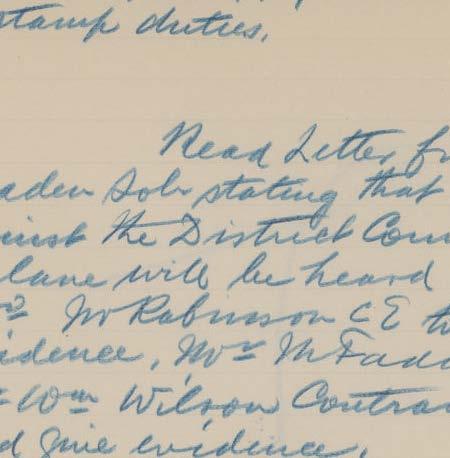 stamp duties.
Read Letter fr
aden Solr stating that
inst the District Coun
lane will be heard
Jno Robinson C E to
idence, Mr McFadd
Wm Wilson Contra
d give evidence.